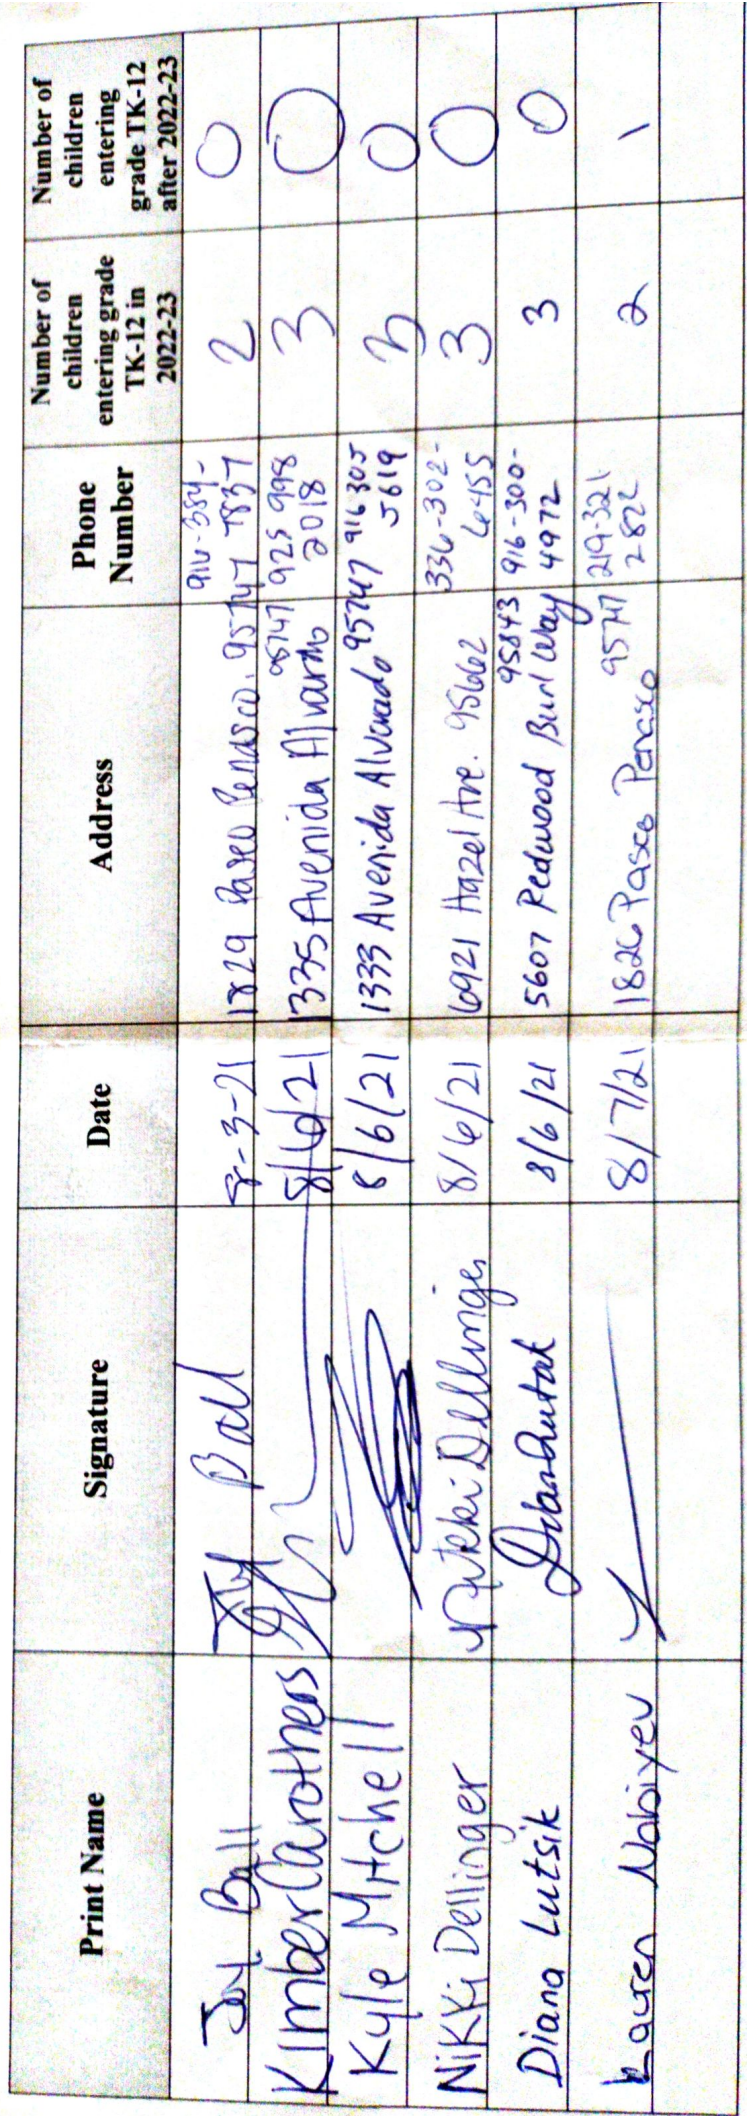 Print Name Signature Date Address Phone Number Number of children entering grade TK-12 in 2022-23 Number of children entering grade TK-12 after 2022-23
Joy Ball Joy Ball 8-3-21 1829 Paseo Penasco. 95747 916-384-7837 2 0
Kimber Carothers 8/6/21 1335 Avenida Alvarado 95747 925 998 2018 3 0
Kyle Mitchell 8/6/21 1333 Avenida Alvarado 95747 916 305 5619 3 0
Nikki Dellinger Nikki Dellinger 8/6/21 6921 Hazel Ave. 95662 336-302-6455 3 0
Diana Lutsik 8/6/21 5607 Redwood Burl Way 95843 916-300-4972 3 0
Lauren Nabiyev 8/7/21 1826 Paseo Penasco 95747 219-321-2822 2 1